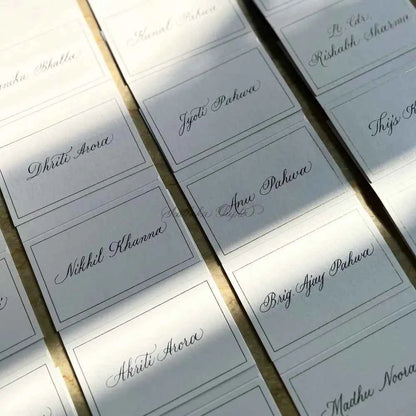 Bhatla
Dhriti Arora
Nikhil Khanna
Akriti Arora
Kunal Pahwa
Jyoti Pahwa
Anu Pahwa
Brig Ajay Pahwa
Madhu Noora
Lt Cdr
Rishabh Sharma
Thijs K